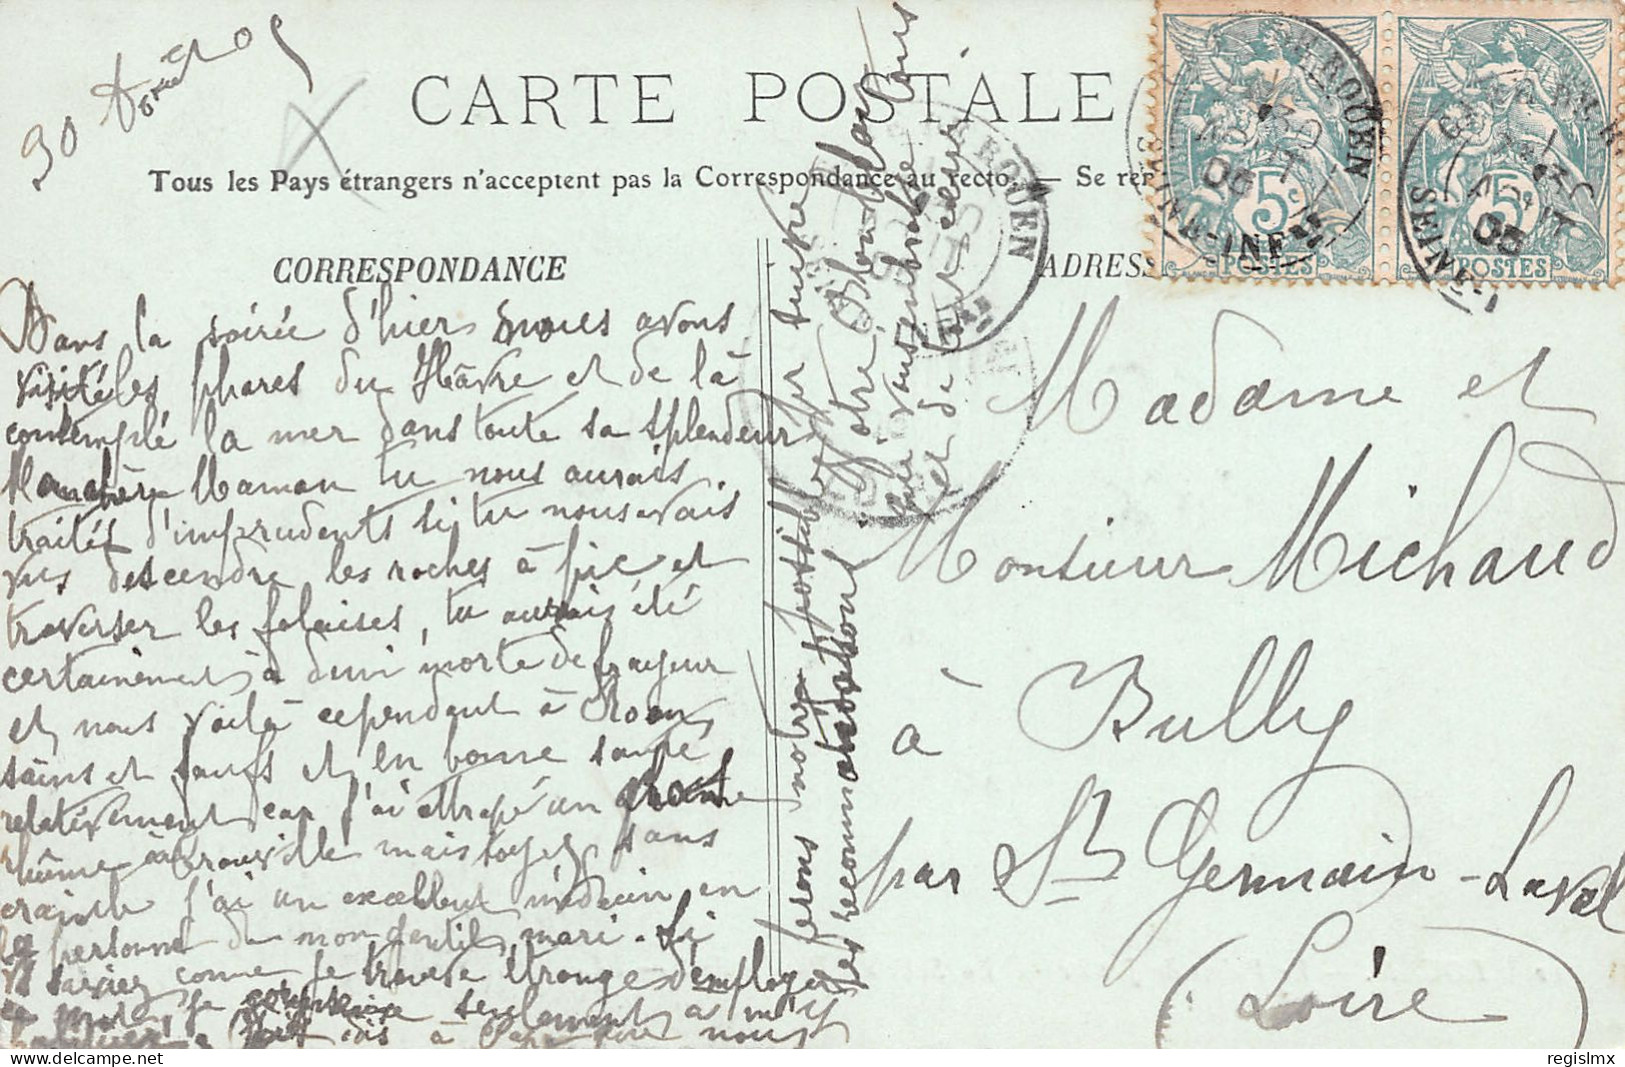 30 Août 05
CARTE POSTALE
Tous les Pays étrangers n'acceptent pas la Correspondance au recto. — Se ren
CORRESPONDANCE
ADRESS
Dans la soirée d'hier nous avons
visité les phares du Hâvre et de là
contemplé la mer dans toute sa splendeur
Maman tu nous aurais
traités d'imprudents si tu nous avais
vus descendre les roches à pic et
traverser les falaises, tu aurais été
certainement à demi morte de frayeur
et nous voilà cependant à Rouen
sains et saufs et en bonne santé
relativement car j'ai attrapé un
rhûme à Trouville mais soyez sans
crainte j'ai un excellent médecin en
la personne de mon gentil mari. Si
vs saviez comme je trouve étrange d'employer
ce mot, je commence seulement à m'y
à nous
ferons notre possible pr suivre
les recommandations
de votre Blanblan
qui vous embrasse tous
et de tout cœur
Madame et
Monsieur Michaud
à Bully
par St Germain-Laval
(Loire)
ROUEN
SEINE-INFRE
30 AOUT 05
5c
POSTES
5c
POSTES
regislmx